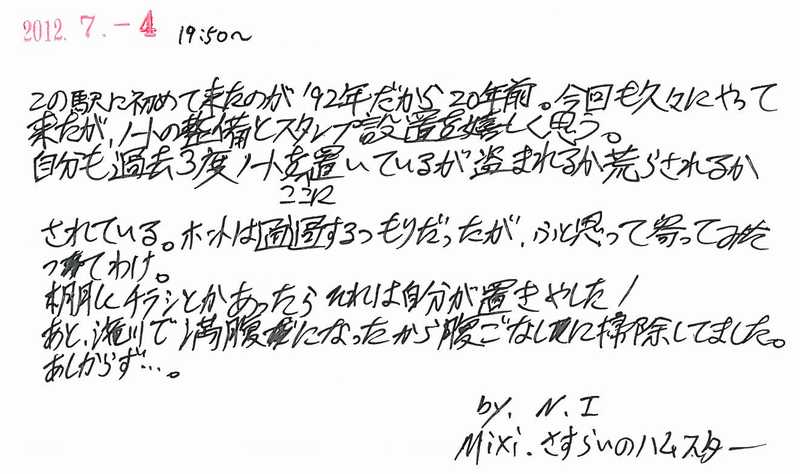 2012.7.-4 19:50～
この駅に初めて来たのが'92年だから20年前。今回も久々にやって
来たが、ノートの整備とスタンプ設置を嬉しく思う。
自分も過去3度ノートを置いているが盗まれるか荒らされるか
ここに
されている。ホントはするつもりだったが、ふと思って寄ってみた
ってわけ。
棚にチラシとかあったらそれは自分が置きやした!
あと、滝川で満腹になったから腹ごなしに掃除してました。
あしからず…。
by. N.I
Mixi.さすらいのハムスター